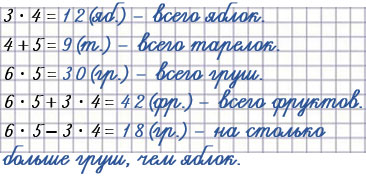 3 · 4 = 12 (яб.) – всего яблок.
4 + 5 = 9 (т.) – всего тарелок.
6 · 5 = 30 (гр.) – всего груш.
6 · 5 + 3 · 4 = 42 (фр.) – всего фруктов.
6 · 5 – 3 · 4 = 18 (гр.) – на столько
больше груш, чем яблок.